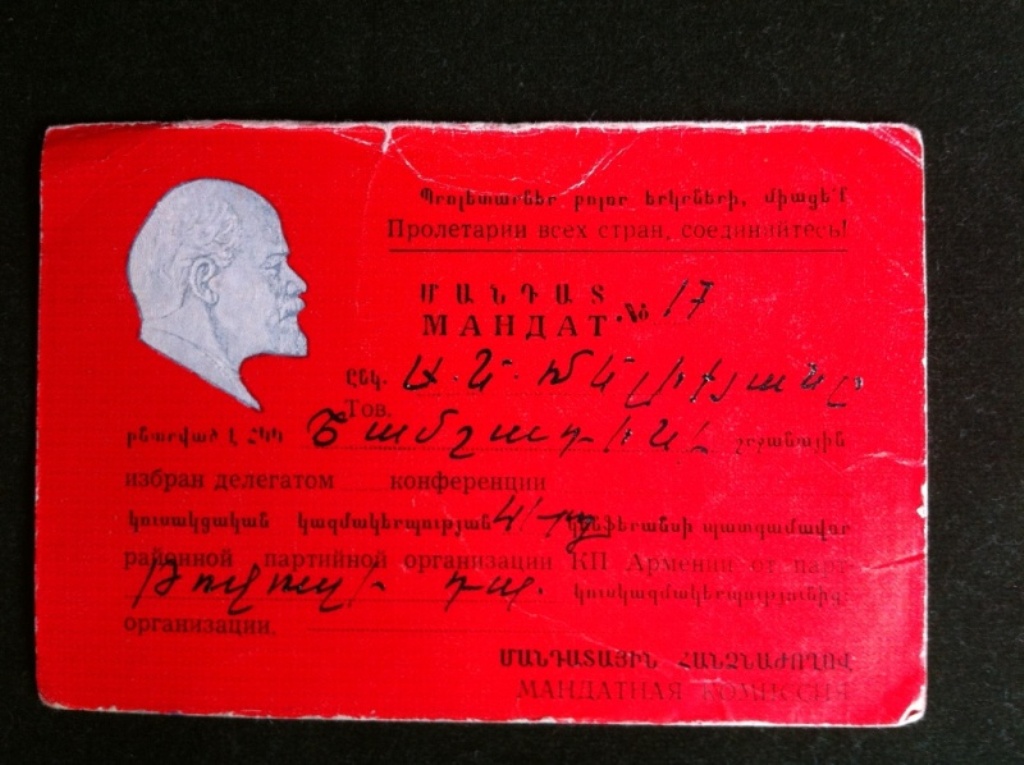 Պրոլետարներ բոլոր երկրների, միացե՛ք
Пролетарии всех стран, соединяйтесь!
ՄԱՆԴԱՏ
МАНДАТ № 17
Ընկ. Ա. Ն.
Тов.
ընտրված է ՀԿԿ Շամշադինի շրջանային
избран делегатом конференции
կուսակցական կազմակերպության կոնֆերանսի պատգամավոր
районной партийной организации КП Армении от парт
կուսկազմակերպությունից
организации.
ՄԱՆԴԱՏԱՅԻՆ ՀԱՆՁՆԱԺՈՂՈՎ
МАНДАТНАЯ КОМИССИЯ